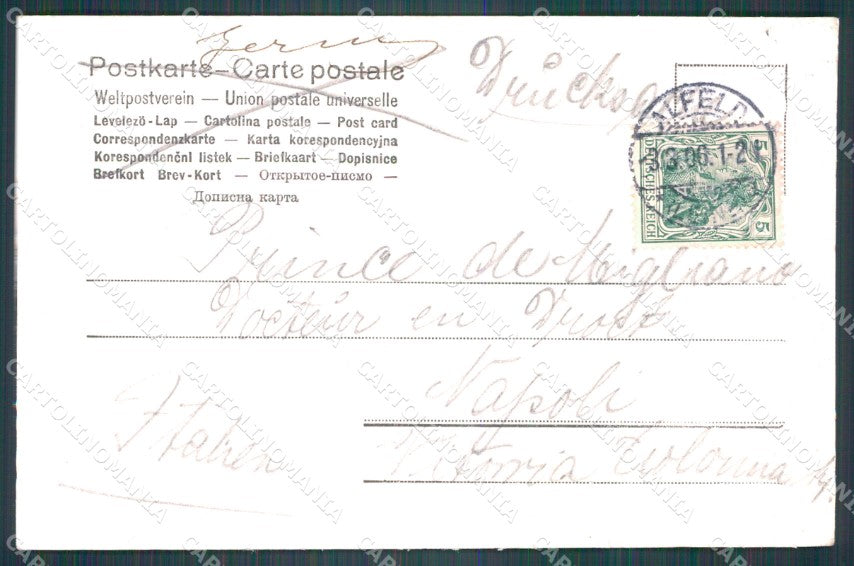 Postkarte – Carte postale
Weltpostverein — Union postale universelle
Levelező-Lap — Cartolina postale — Post card
Correspondenzkarte — Karta korespondencyjna
Korespondenční listek — Briefkaart — Dopisnice
Brefkort Brev-Kort — Открытое-писмо —
Дописна карта
ALFELD
5
DEUTSCHES REICH
5
Prince de Migliano
Docteur en Droit
Napoli
Italien
Vittoria Colonna
CARTOLINOMANIA